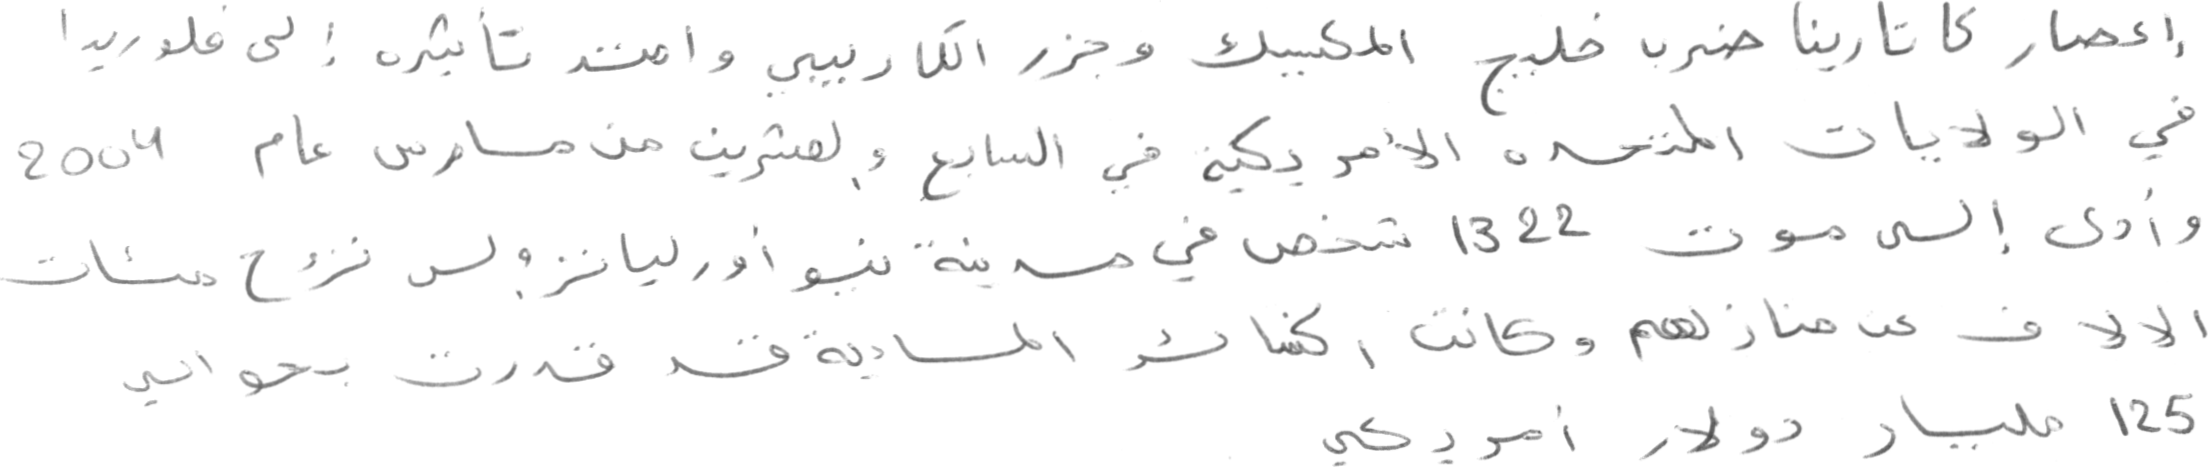 إعصار كاتارينا ضرب خليج المكسيك وجزر الكاريبي وامتد تأثيره إلى فلوريدا
في الولايات المتحده الأمريكية في السابع والعشرين من مارس عام 2004
وأدى إلى موت 1322 شخص في مدينة نيو أورليانز وإلى نزوح مئات
الالاف عن منازلهم وكانت الخسائر المادية قد قدرت بحوالي
125 مليار دولار أمريكي